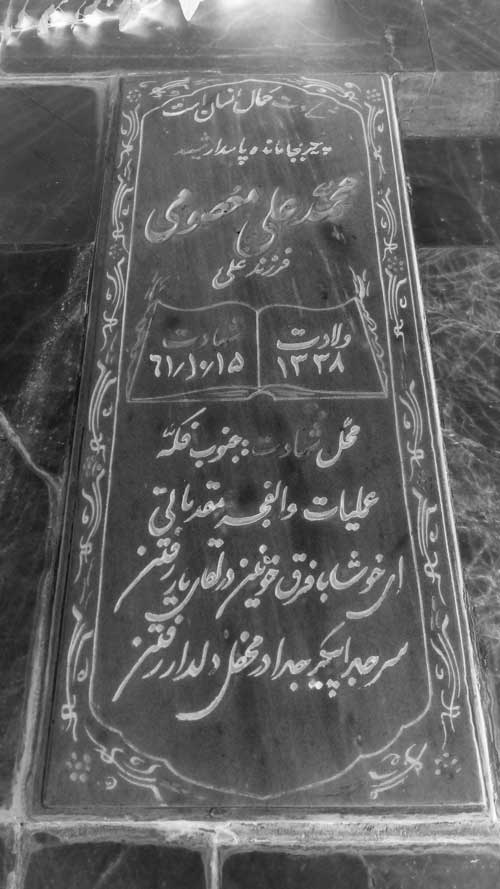 حال انسان است
پیکر بجا مانده پاسدار شهید
محمد علی معصومی
فرزند علی
ولادت
۱۳۳۸
شهادت
۶۱/۱۰/۱۵
محل شهادت: جنوب فکه
عملیات والفجر مقدماتی
ای خوشا با فرق خونین در لقای یار رفتن
سر جدا پیکر جدا در محفل دلدار رفتن